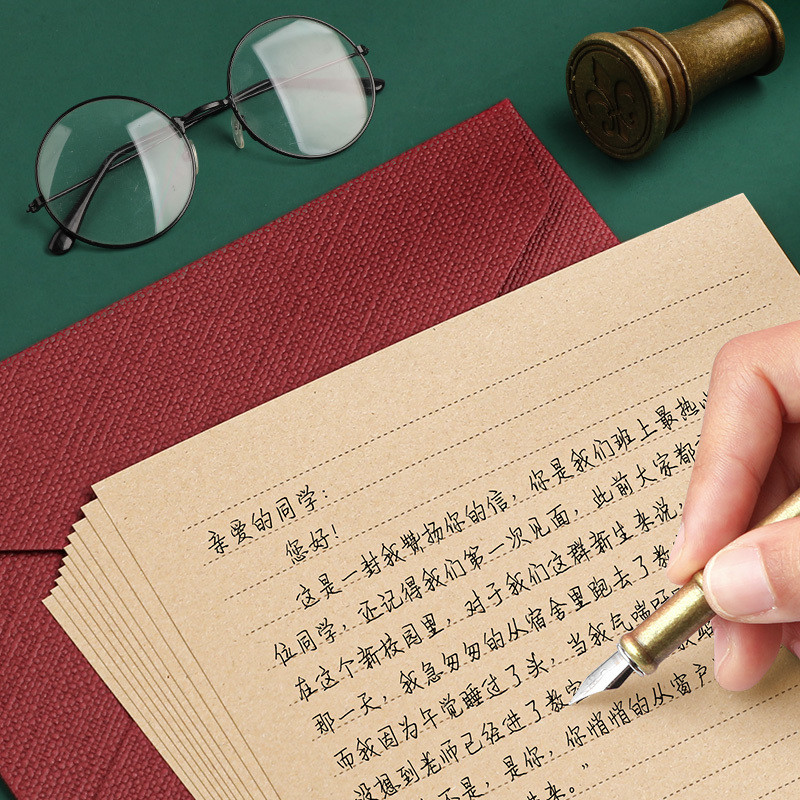 亲爱的同学:
您好!
这是一封我赞扬你的信,你是我们班上最热
位同学,还记得我们第一次见面,此前大家都
在这个新校园里,对于我们这群新生来说,
那一天,我急匆匆的从宿舍里跑去了教
而我因为午觉睡过了头,当我气喘吁
没想到老师已经进了教室
不是,是你,你悄悄的从窗户
来。”